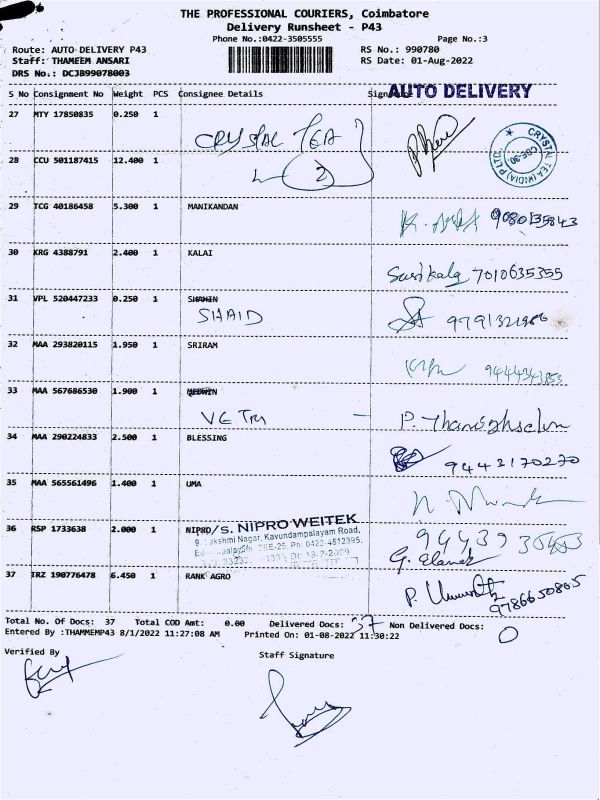 THE PROFESSIONAL COURIERS, Coimbatore
Delivery Runsheet - P43
Phone No.:0422-3505555
Page No.:3
Route: AUTO DELIVERY P43
RS No.: 990780
Staff: THAMEEM ANSARI
RS Date: 01-Aug-2022
DRS No.: DCJB99078003
S No Consignment No Weight PCS Consignee Details
AUTO DELIVERY
27 MTY 17850835 0.250 1 CRYSTAL TEA
28 CCU 501187415 12.400 1 2
CRYSTAL TEA (INDIA) P LTD. CBE-30
29 TCG 40186458 5.300 1 MANIKANDAN
30 KRG 4388791 2.400 1 KALAI
Sasikala 7010635355
31 VPL 520447233 0.250 1 SHAHIN
SHAID
32 MAA 293820115 1.950 1 SRIRAM
33 MAA 567686530 1.900 1
VETRI
34 MAA 290224833 2.500 1 BLESSING
9442170270
35 MAA 565561496 1.400 1 UMA
36 RSP 1733638 2.000 1 NIPRO/S. NIPRO WEITEK
Lakshmi Nagar, Kavundampalayam Road,
CBE-25. Ph: 0422-4512395.
37 TRZ 190776478 6.450 1 RANK AGRO
9786650805
Total No. Of Docs: 37 Total COD Amt: 0.00 Delivered Docs: 37 Non Delivered Docs: 0
Entered By :THAMMEMP43 8/1/2022 11:27:08 AM Printed On: 01-08-2022 11:30:22
Verified By
Staff Signature